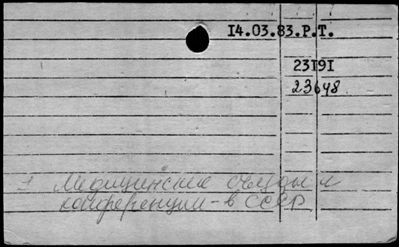 14.03.83.Р.Т.
23191
23648
Медицинские съезды и
конференции - в СССР